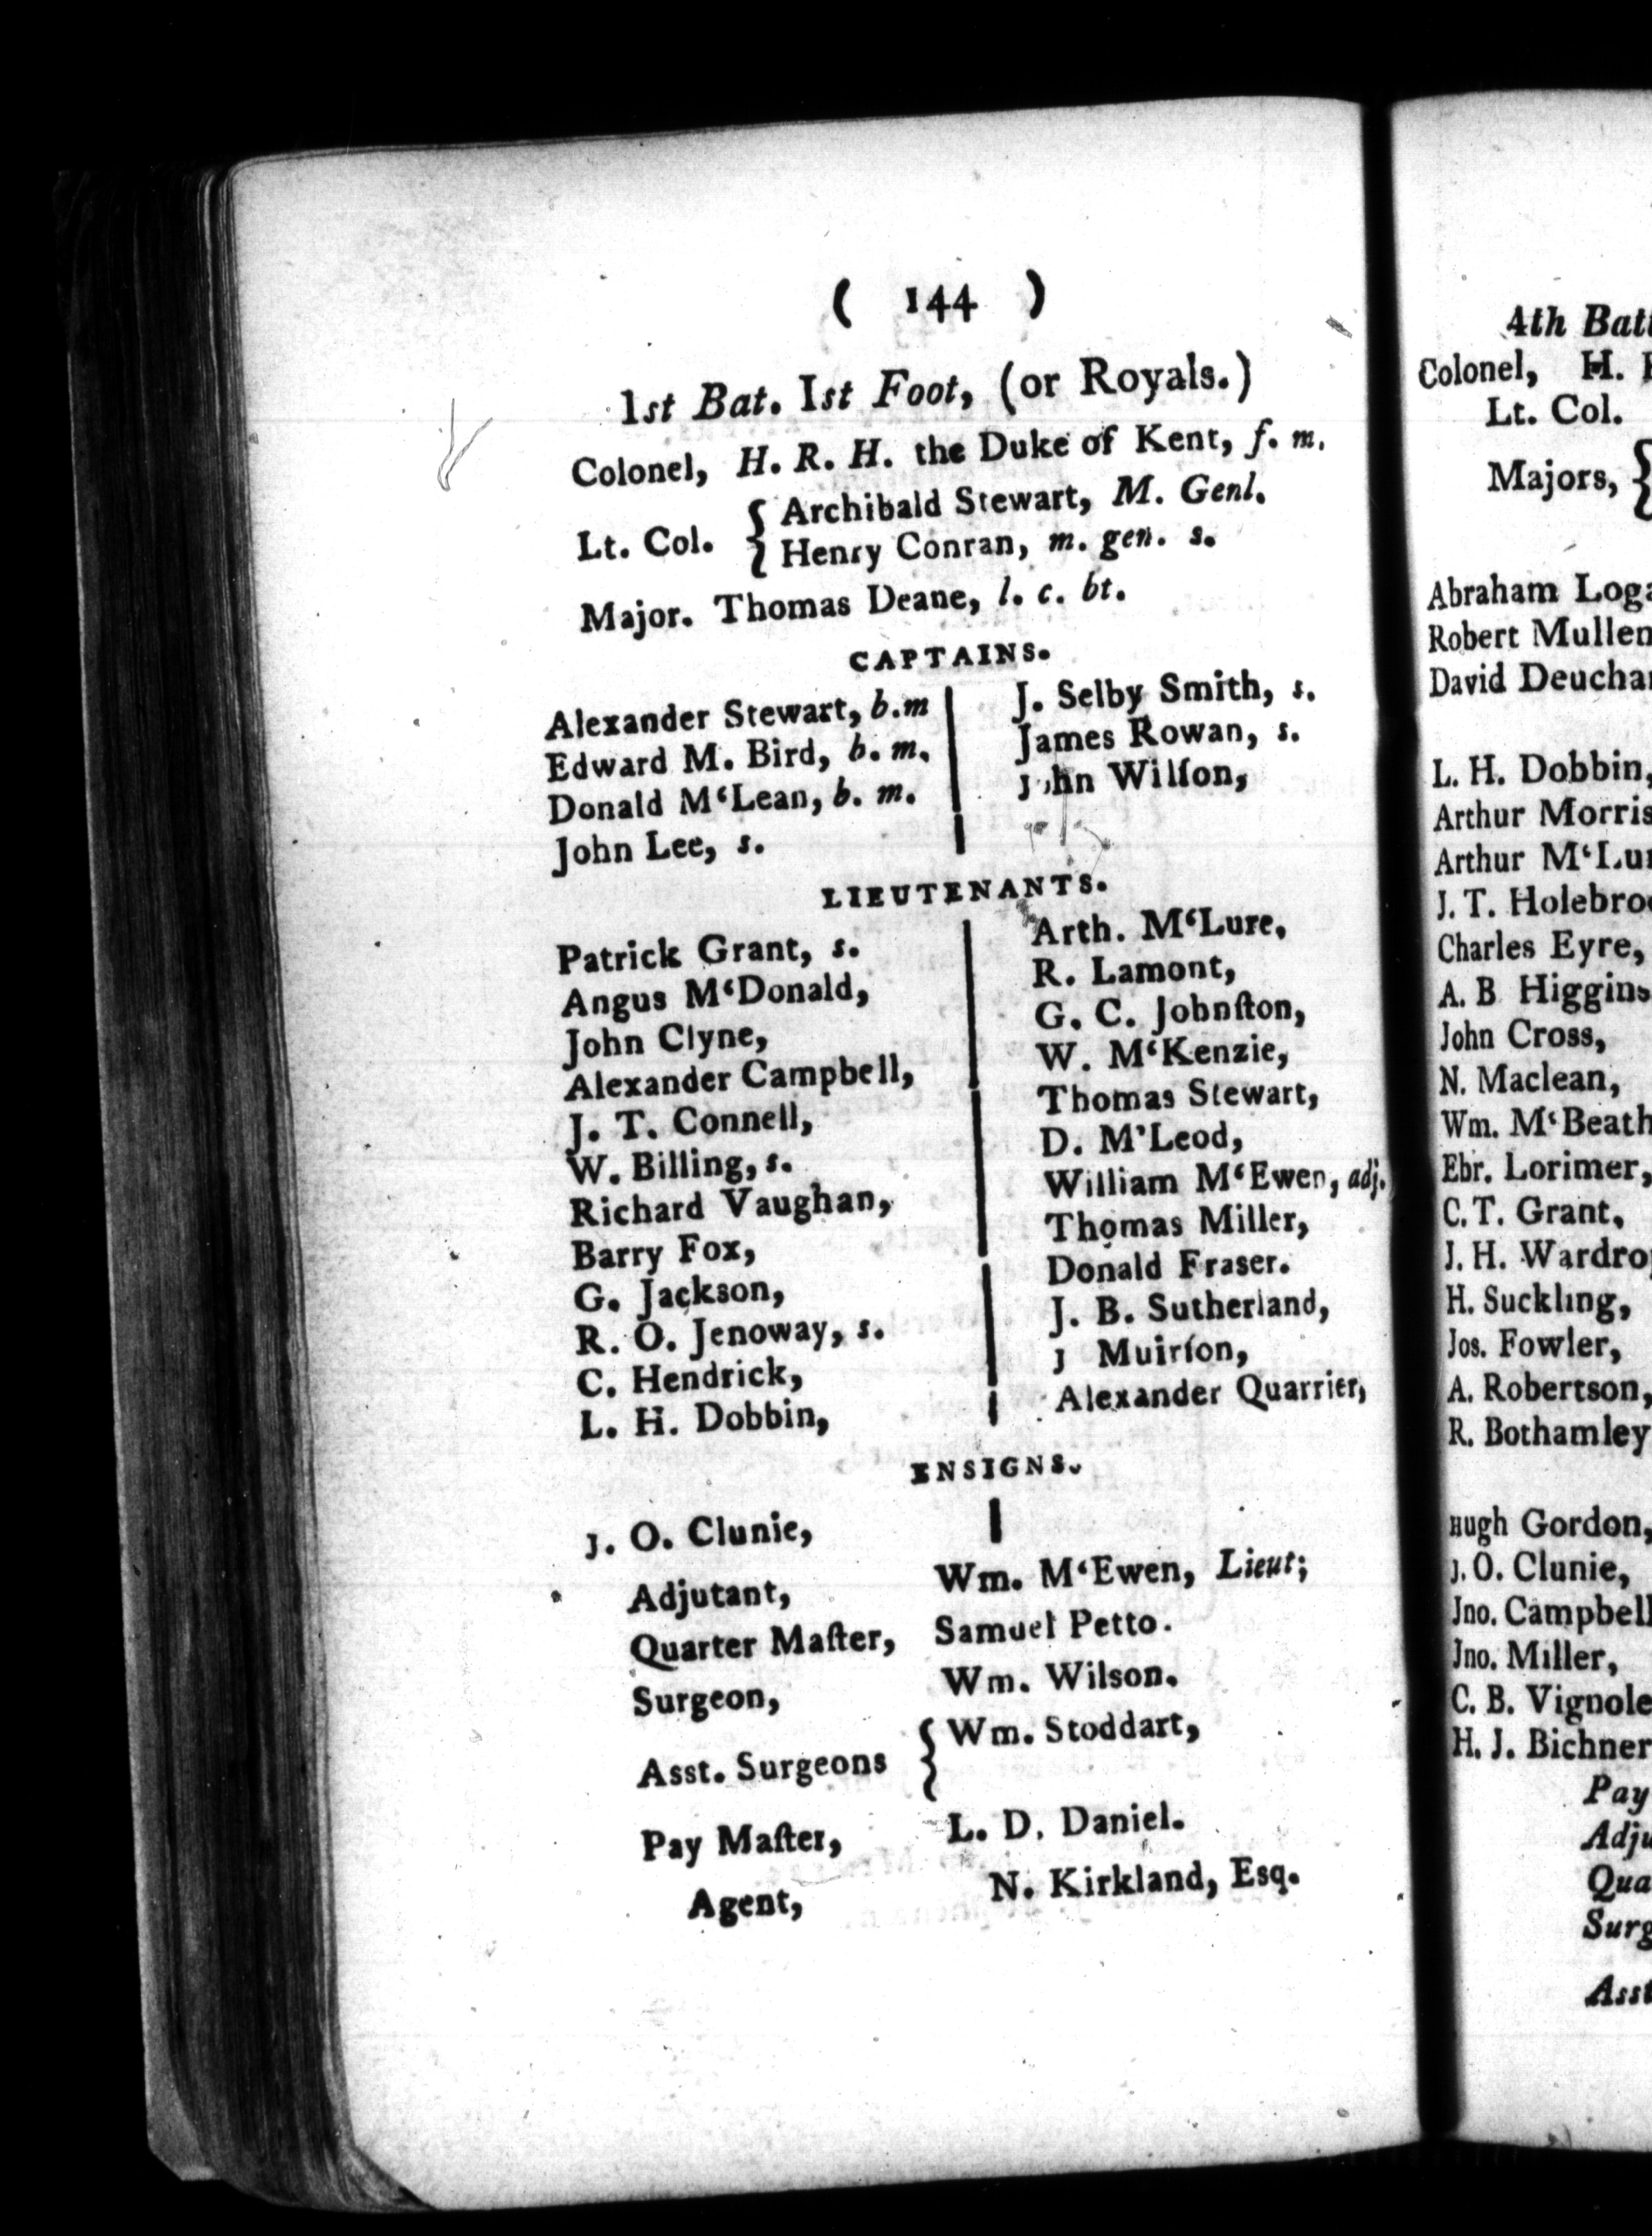 ( 144 )
1st Bat. Ist Foot, (or Royals.)
Colonel, H. R. H. the Duke of Kent, f. m.
Lt. Col. { Archibald Stewart, M. Genl.
Henry Conran, m. gen. s.
Major. Thomas Deane, l. c. bt.
CAPTAINS.
Alexander Stewart, b.m
Edward M. Bird, b. m.
Donald M‘Lean, b. m.
John Lee, s.
J. Selby Smith, s.
James Rowan, s.
John Wilſon,
LIEUTENANTS.
Patrick Grant, s.
Angus M‘Donald,
John Clyne,
Alexander Campbell,
J. T. Connell,
W. Billing, s.
Richard Vaughan,
Barry Fox,
G. Jackson,
R. O. Jenoway, s.
C. Hendrick,
L. H. Dobbin,
Arth. M‘Lure,
R. Lamont,
G. C. Johnſton,
W. M‘Kenzie,
Thomas Stewart,
D. M’Leod,
William M‘Ewen, adj.
Thomas Miller,
Donald Fraser.
J. B. Sutherland,
J Muirſon,
Alexander Quarrier,
ENSIGNS.
J. O. Clunie,
Adjutant, Wm. M‘Ewen, Lieut;
Quarter Maſter, Samuel Petto.
Surgeon, Wm. Wilson.
Asst. Surgeons { Wm. Stoddart,
Pay Maſter, L. D. Daniel.
Agent, N. Kirkland, Esq.
4th Batt
Colonel, H.
Lt. Col.
Majors, {
Abraham Loga
Robert Mullen
David Deuchar
L. H. Dobbin,
Arthur Morris
Arthur M‘Lur
J. T. Holebroo
Charles Eyre,
A. B Higgins
John Cross,
N. Maclean,
Wm. M‘Beath
Ebr. Lorimer,
C. T. Grant,
J. H. Wardro
H. Suckling,
Jos. Fowler,
A. Robertson,
R. Bothamley
Hugh Gordon,
J. O. Clunie,
Jno. Campbell
Jno. Miller,
C. B. Vignole
H. J. Bichner
Pay
Adju
Qua
Surg
Asst